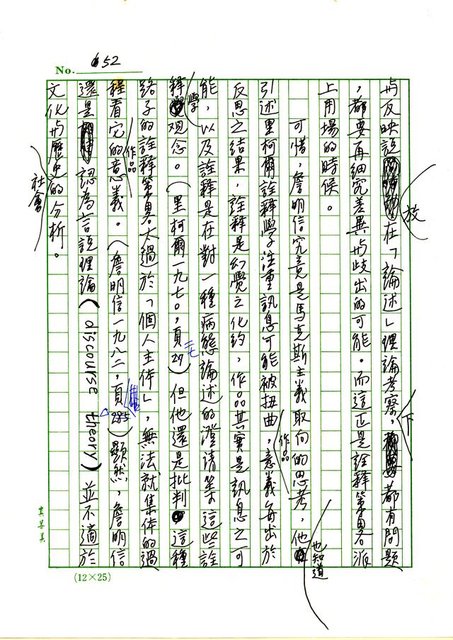 No. 52
與反映說在「論述」理論考察下,都有問題
,都要再細究差異與歧出的可能。而這正是詮釋策略派
上用場的時候。
可惜,詹明信究竟是馬克斯主義取向的思考,他也知道
引述里柯爾詮釋學注重訊息可能被扭曲,意義每出於
反思之結果,詮釋是幻覺之化約,作品其實是訊息之可
能,以及詮釋是在對一種病態論述的澄清等這些詮
釋學觀念。(里柯爾一九七〇,頁27)但他還是批判這種
給予的詮釋策略太過於「個人主体」,無法就集体的過
程看它的作品意義。(詹明信一九八二,頁285)顯然,詹明信
還是認為言說理論(discourse theory)並不適於
文化與歷史的社會分析。
(12×25)